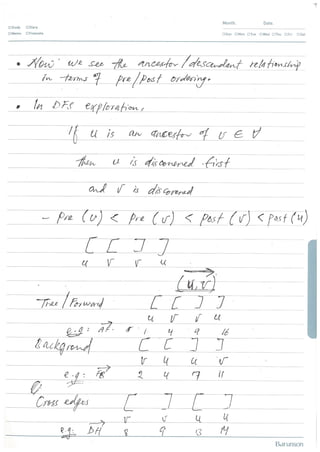 Month. Date.
• Now we see the ancestor / descendent relationship
in terms of pre / post ordering.
• In DFS exploration,
If u is an ancestor of v ∈ V
then u is discovered first
and v is discovered
- Pre (u) < Pre (v) < Post (v) < Post (u)
[ [ ] ]
u v v u
(u, v)
Tree / Forward [ [ ] ]
u v v u
e.g: 1 4 9 16
Background [ [ ] ]
v u u v
e.g: 2 4 7 11
Cross edges [ ] [ ]
v v u u
e.g: DH 8 9 13 14
Barunson